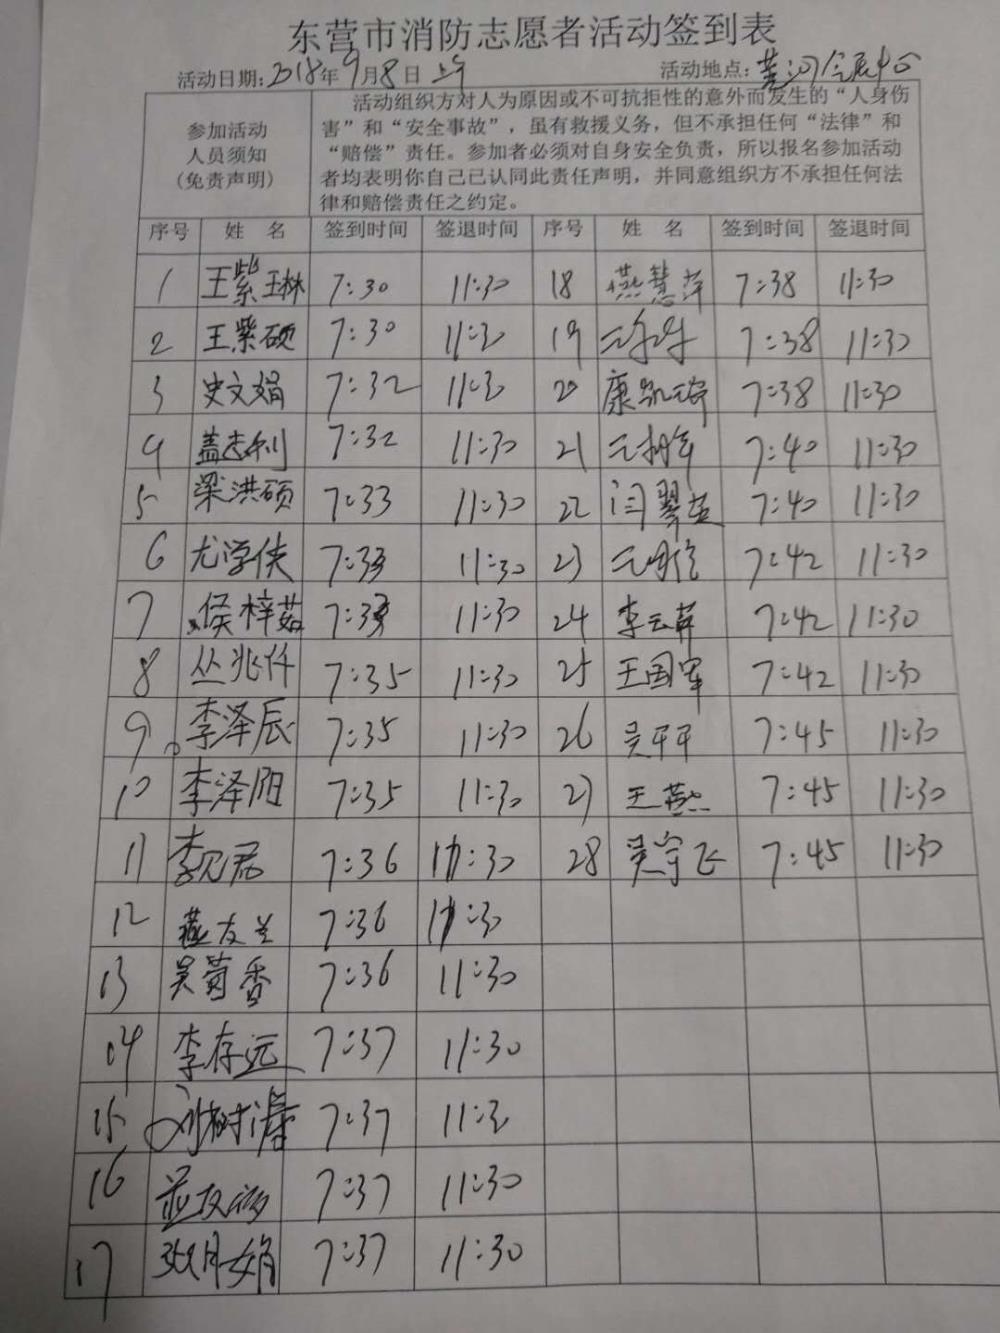 东营市消防志愿者活动签到表
活动日期:2018年9月8日上午 活动地点:黄河会展中心
参加活动
人员须知
(免责声明)
活动组织方对人为原因或不可抗拒性的意外而发生的“人身伤
害”和“安全事故”，虽有救援义务，但不承担任何“法律”和
“赔偿”责任。参加者必须对自身安全负责，所以报名参加活动
者均表明你自己已认同此责任声明，并同意组织方不承担任何法
律和赔偿责任之约定。
序号 姓 名 签到时间 签退时间 序号 姓 名 签到时间 签退时间
1 王紫琳 7:30 11:30 18 燕慧萍 7:38 11:30
2 王紫硕 7:30 11:30 19 7:38 11:30
3 史文娟 7:32 11:30 20 康凯琦 7:38 11:30
4 盖志利 7:32 11:30 21 7:40 11:30
5 梁洪硕 7:33 11:30 22 闫翠英 7:40 11:30
6 尤学侠 7:33 11:30 23 7:42 11:30
7 侯梓茹 7:33 11:30 24 李云华 7:42 11:30
8 丛兆仟 7:35 11:30 25 王国军 7:42 11:30
9 李泽辰 7:35 11:30 26 吴平平 7:45 11:30
10 李泽阳 7:35 11:30 27 王燕 7:45 11:30
11 7:36 11:30 28 吴宇飞 7:45 11:30
12 燕友兰 7:36 11:30
13 吴菊香 7:36 11:30
14 李存远 7:37 11:30
15 刘树涛 7:37 11:30
16 7:37 11:30
17 张月娟 7:37 11:30